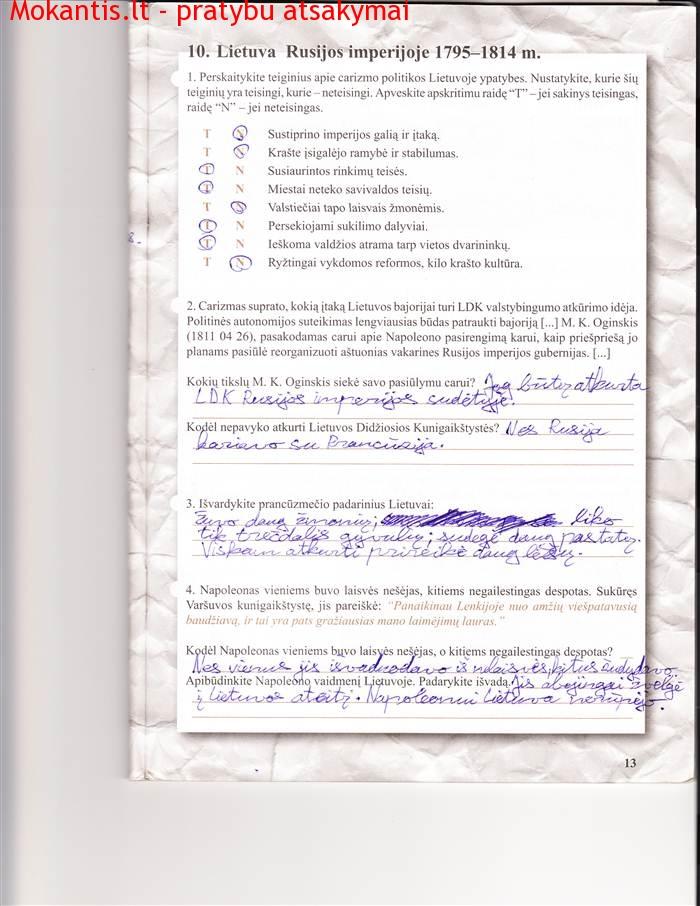 Mokantis.lt - pratybu atsakymai
10. Lietuva Rusijos imperijoje 1795–1814 m.
1. Perskaitykite teiginius apie carizmo politikos Lietuvoje ypatybes. Nustatykite, kurie šių
teiginių yra teisingi, kurie – neteisingi. Apveskite apskritimu raidę “T” – jei sakinys teisingas,
raidę “N” – jei neteisingas.
T N Sustiprino imperijos galią ir įtaką.
T N Krašte įsigalėjo ramybė ir stabilumas.
T N Susiaurintos rinkimų teisės.
T N Miestai neteko savivaldos teisių.
T N Valstiečiai tapo laisvais žmonėmis.
T N Persekiojami sukilimo dalyviai.
8.
T N Ieškoma valdžios atrama tarp vietos dvarininkų.
T N Ryžtingai vykdomos reformos, kilo krašto kultūra.
2. Carizmas suprato, kokią įtaką Lietuvos bajorijai turi LDK valstybingumo atkūrimo idėja.
Politinės autonomijos suteikimas lengviausias būdas patraukti bajoriją [...] M. K. Oginskis
(1811 04 26), pasakodamas carui apie Napoleono pasirengimą karui, kaip priešpriešą jo
planams pasiūlė reorganizuoti aštuonias vakarines Rusijos imperijos gubernijas. [...]
Kokių tikslų M. K. Oginskis siekė savo pasiūlymu carui? Jog būtų atkurta
LDK Rusijos imperijos sudėtyje.
Kodėl nepavyko atkurti Lietuvos Didžiosios Kunigaikštystės? Nes Rusija
kariavo su Prancūzija.
3. Išvardykite prancūzmečio padarinius Lietuvai:
žuvo daug žmonių; liko
tik trečdalis gyvulių; sudegė daug pastatų.
Viskam atkurti prireikė daug lėšų.
4. Napoleonas vieniems buvo laisvės nešėjas, kitiems negailestingas despotas. Sukūręs
Varšuvos kunigaikštystę, jis pareiškė: “Panaikinau Lenkijoje nuo amžių viešpatavusią
baudžiavą, ir tai yra pats gražiausias mano laimėjimų lauras.”
Kodėl Napoleonas vieniems buvo laisvės nešėjas, o kitiems negailestingas despotas?
Nes vienus jis išvaduodavo iš nelaisvės, kitus žudydavo
Apibūdinkite Napoleono vaidmenį Lietuvoje. Padarykite išvadą. Jis abejingai žvelgė
į Lietuvos ateitį. Napoleonui Lietuva nerūpėjo.
13